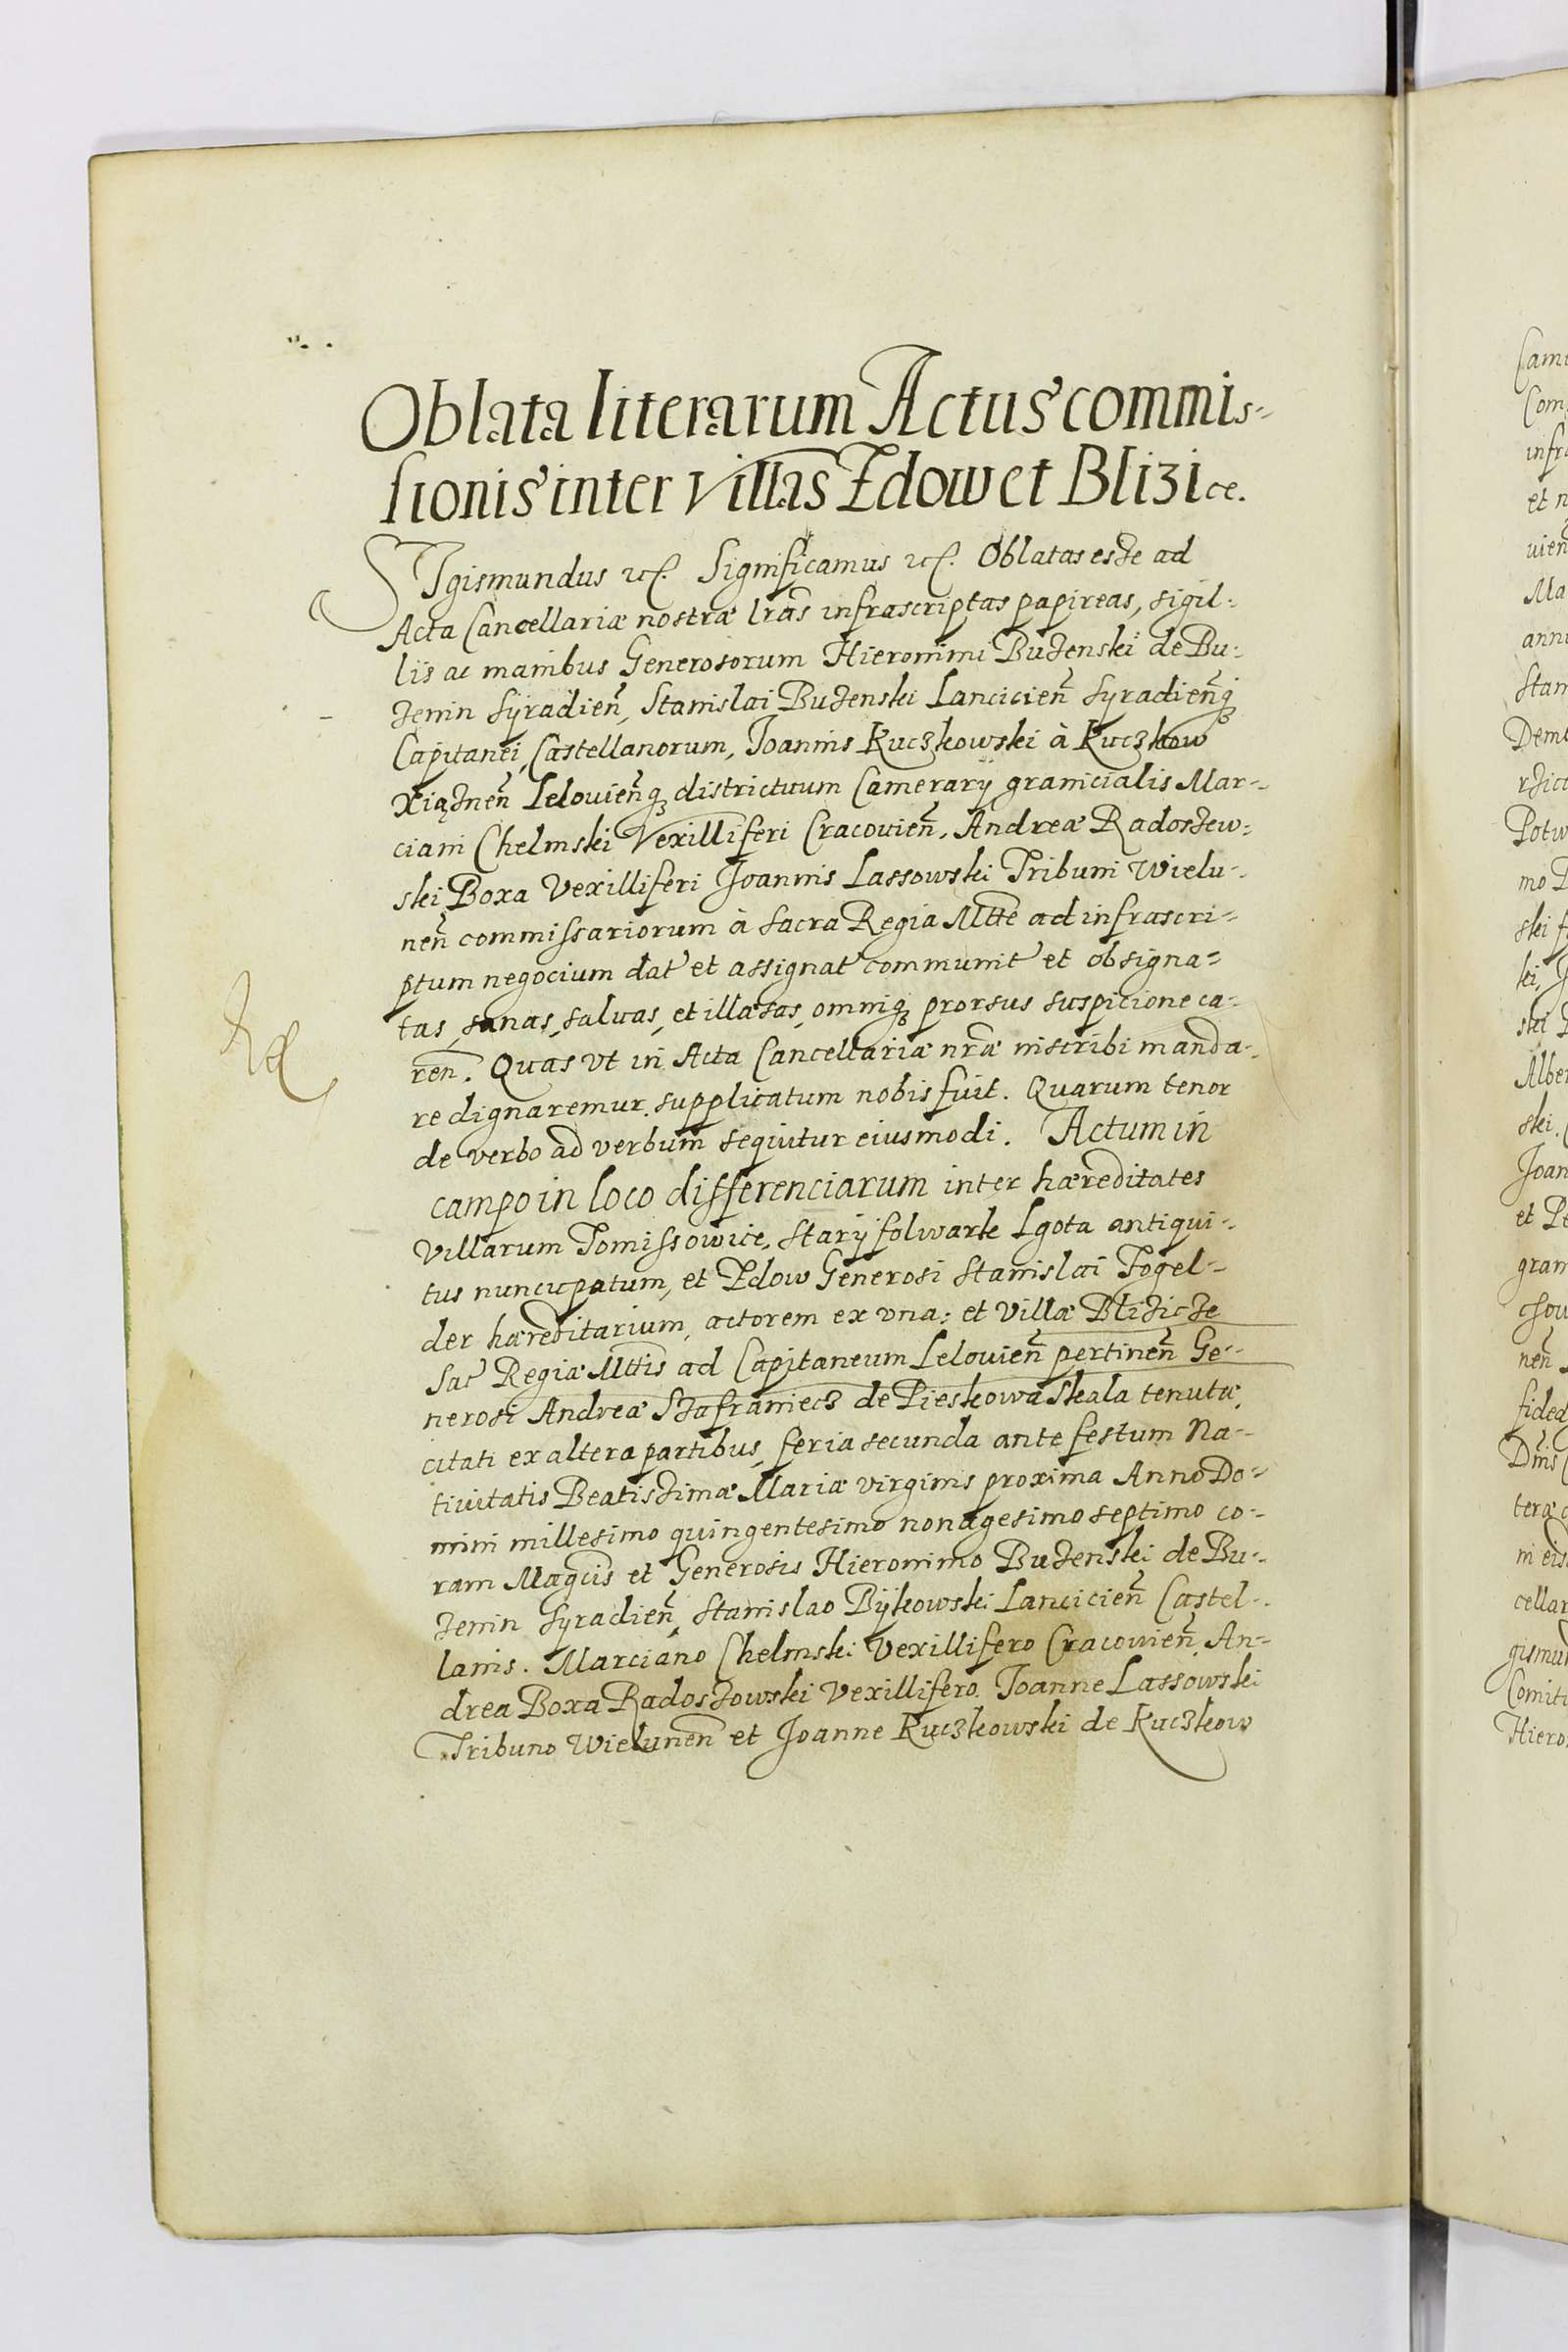 Oblata literarum Actus commis-
sionis inter villas Zdow et Blizice.
SIgismundus etc. Significamus etc. Oblatas esse ad
Acta Cancellariæ nostræ lrãs infrascriptas papireas, sigil-
lis ac manibus Generosorum Hieronimi Buzenski de Bu-
zenin Syradien̄, Stanislai Buzenski Lancicien̄ Syradien̄q
Capitanei, Castellanorum, Joannis Kuczkowski à Kuczkow
Xiąznen̄ Lelovien̄q districtuum Camerarij granicialis Mar-
ciani Chelmski Vexilliferi Cracovien̄, Andreæ Radoszew-
ski Boxa Vexilliferi Joannis Lassowski Tribuni Wielu-
nen̄ commissariorum à Sacra Regia Mtte ad infrascri-
ptum negocium dat et assignat communit et obsigna-
tas, sanas, salvas, et illæsas, omniq prorsus suspicione ca-
ren̄. Quas vt in Acta Cancellariæ nræ inscribi manda-
re dignaremur supplicatum nobis fuit. Quarum tenor
de verbo ad verbum sequitur eiusmodi. Actum in
campo in loco differenciarum inter hæreditates
Villarum Tomissowice, Starÿ folwark Lgota antiqui-
tus nuncupatum, et Zdow Generosi Stanislai Fogel-
der hæreditarium, actorem ex vna: et Villæ Blizicze
Sac Regiæ Mttis ad Capitaneum Lelovien̄ pertinen̄ Ge-
nerosi Andreæ Szafraniecz de Pieskowa Skala tenutæ,
citati ex altera partibus, feria secunda ante festum Na-
tivitatis Beatissimæ Mariæ virginis proxima Anno Do-
mini millesimo quingentesimo nonagesimo septimo co-
ram Magcis et Generosis Hieronimo Buzenski de Bu-
zenin Syradien̄, Stanislao Bÿkowski Lancicien̄ Castel-
lanis. Marciano Chelmski Vexillifero Cracovien̄, An-
drea Boxa Radoszowski Vexillifero. Joanne Lassowski
Tribuno Wielunen̄ et Joanne Kuczkowski de Kuczkow